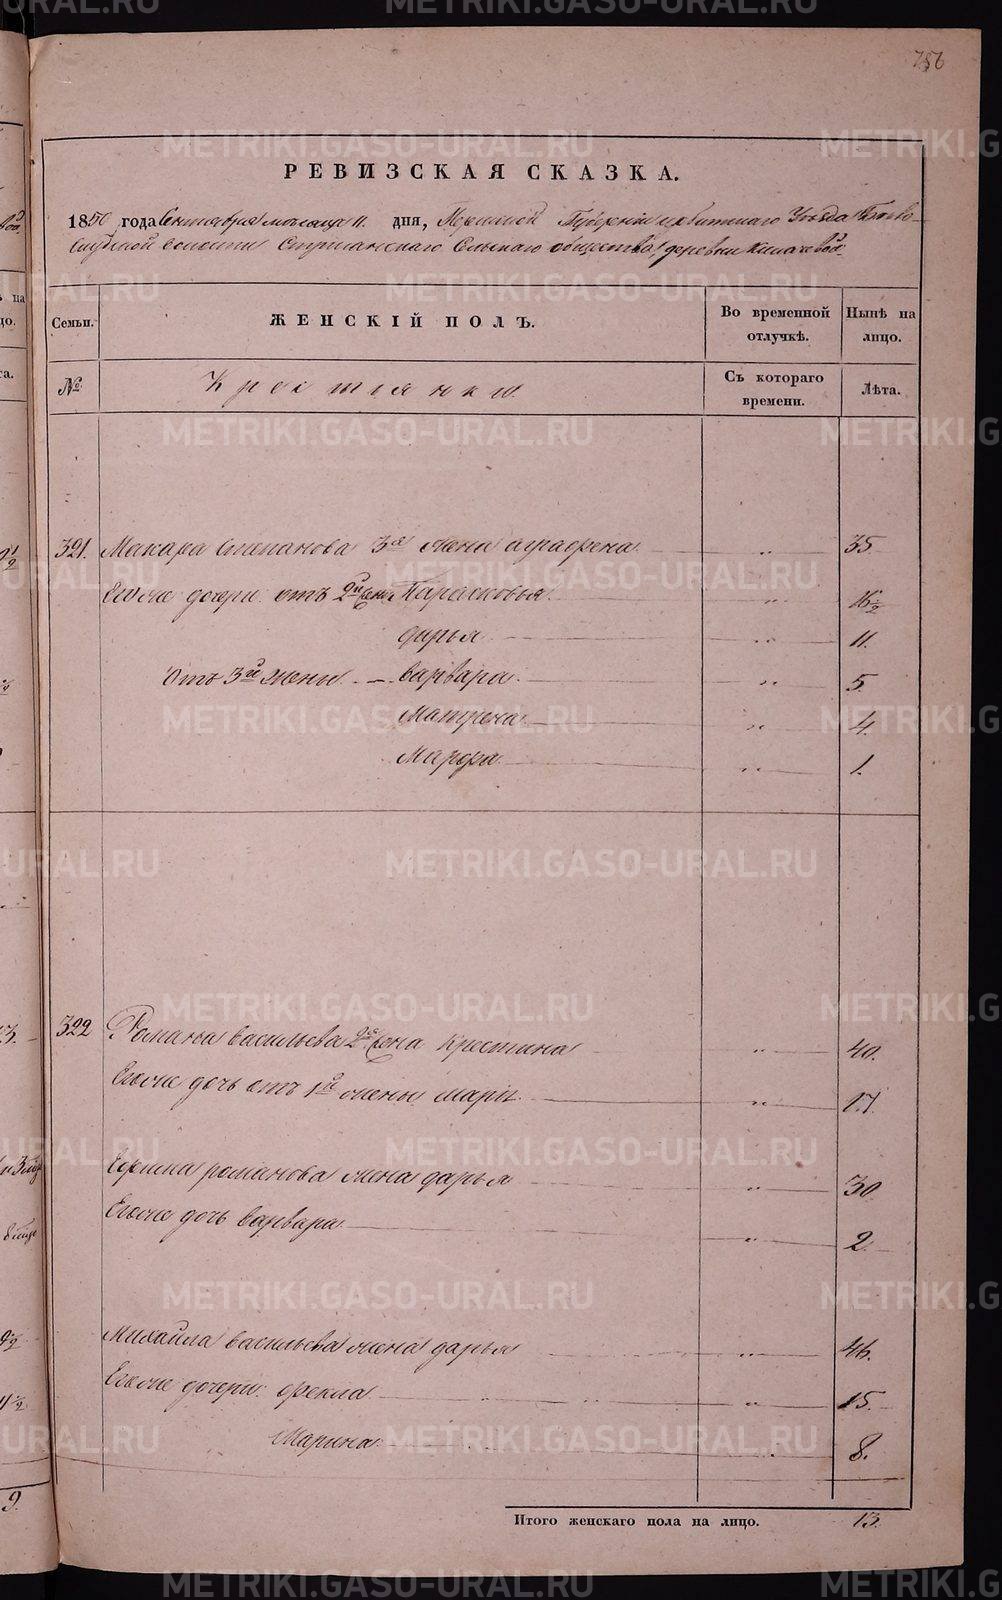 756
РЕВИЗСКАЯ СКАЗКА.
1850 года Сентября месяца 11 дня, Пермской Губернии Ирбитского Уезда Бело-
слудской волости Стриганскаго Сельскаго общества, деревни Кипачевой
Семьи.
ЖЕНСКІЙ ПОЛЪ.
Во временной отлучкѣ.
Нынѣ на лицо.
№
Крестьянки
Съ котораго времени.
Лѣта.
321. Макара Степанова 3я жена аграфена " 35
Егоже дочери отъ 2й жены Парасковья " 16½
дарья " 11.
Отъ 3й жены варвара " 5
Матрена " 4.
Марфа " 1.
322 Романа васильева 2я жена Крестина " 40.
Егоже дочь отъ 1й жены Марья " 17.
Ефима романова жена дарья " 30
Егоже дочь варвара " 2.
Михайла васильева жена дарья " 46.
Егоже дочери: фекла " 15.
Марина " 8.
Итого женскаго пола на лицо. 13.
METRIKI.GASO-URAL.RU